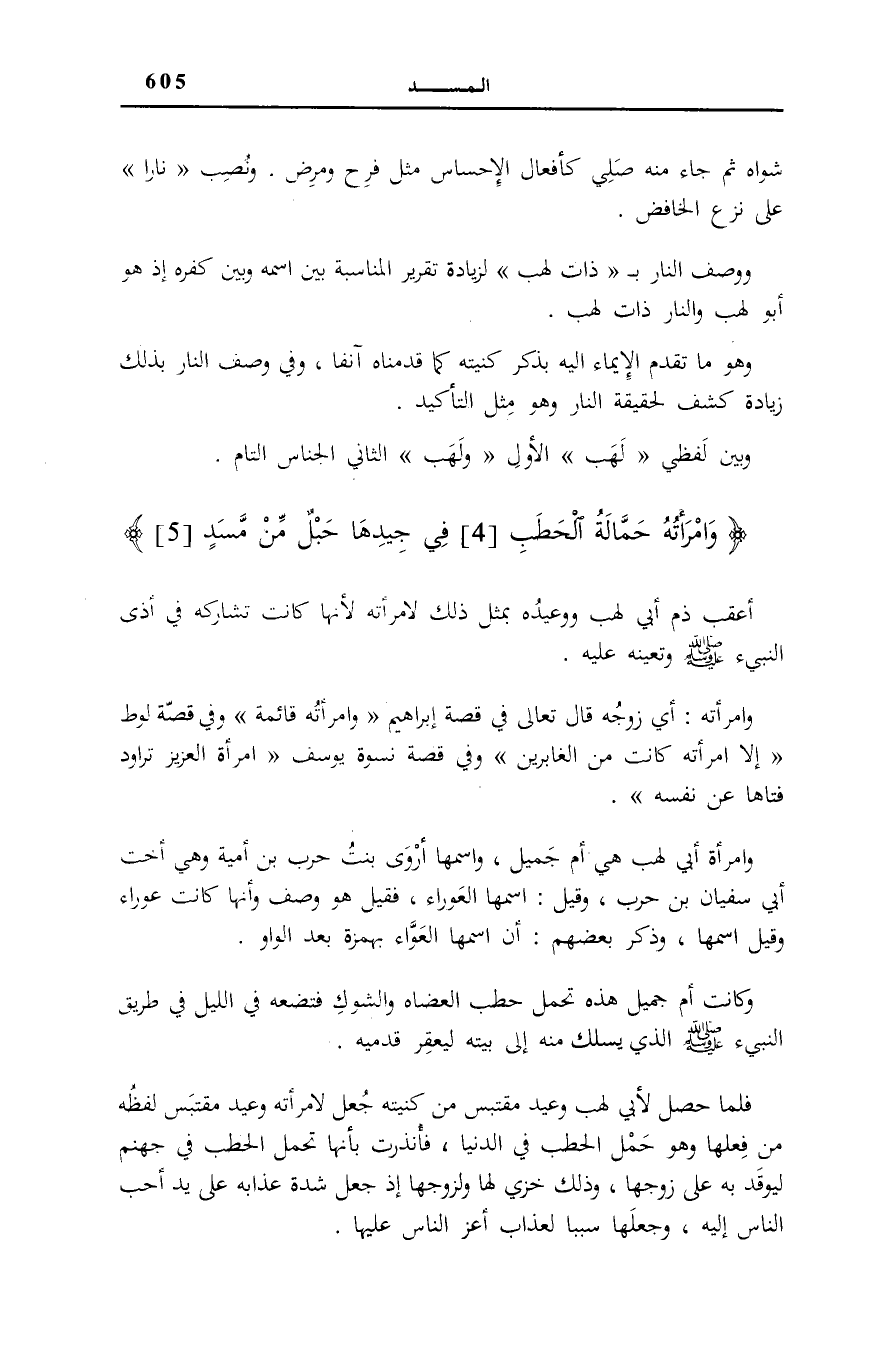 المسد 605
شواه ثم جاء منه صَلِي كأفعال الإحساس مثل فرِح ومرِض . ونُصِب « نارا »
على نزع الخافض .
ووصف النار بـ « ذات لهب » لزيادة تقرير المناسبة بين اسمه وبين كفره إذ هو
أبو لهب والنار ذات لهب .
وهو ما تقدم الإيماء اليه بذكر كنيته كما قدمناه آنفا ، وفي وصف النار بذلك
زيادة كشف لحقيقة النار وهو مِثل التأكيد .
وبين لَفظي « لَهَب » الأولِ « ولَهَب » الثاني الجناس التام .
﴿ وَامْرَأَتُهُ حَمَّالَةُ ٱلْحَطَبِ [4] فِي جِيدِهَا حَبْلٌ مِّنْ مَّسَدٍ [5] ﴾
أعقب ذم أبي لهب ووعيدُه بمثل ذلك لامرأته لأنها كانت تشاركه في أذى
النبيء ﷺ وتعينه عليه .
وامرأته : أي زوجُه قال تعالى في قصة إبراهيم « وامرأتُه قائمة » وفي قصّة لوط
« إلا امرأته كانت من الغابرين » وفي قصة نسوة يوسف « امرأة العزيز تراود
فتاها عن نفسه » .
وامرأة أبي لهب هي أم جَميل ، واسمها أرْوَى بنتُ حرب بن أمية وهي أخت
أبي سفيان بن حرب ، وقيل : اسمها العَوراء ، فقيل هو وصف وأنها كانت عوراء
وقيل اسمها ، وذكر بعضهم : أن اسمها العَوَّاء بهمزة بعد الواو .
وكانت أم جميل هذه تحمل حطب العضاه والشوكِ فتضعه في الليل في طريق
النبيء ﷺ الذي يسلك منه إلى بيته ليعقِر قدميه .
فلما حصل لأبي لهب وعيد مقتبس من كنيته جُعل لامرأته وعيد مقتبَس لفظُه
من فِعلها وهو حَمْل الحطب في الدنيا ، فأُنذرت بأنها تحمل الحطب في جهنم
ليوقَد به على زوجها ، وذلك خزي لها ولزوجها إذ جعل شدة عذابه على يد أحب
الناس إليه ، وجعلَها سببا لعذاب أعز الناس عليها .